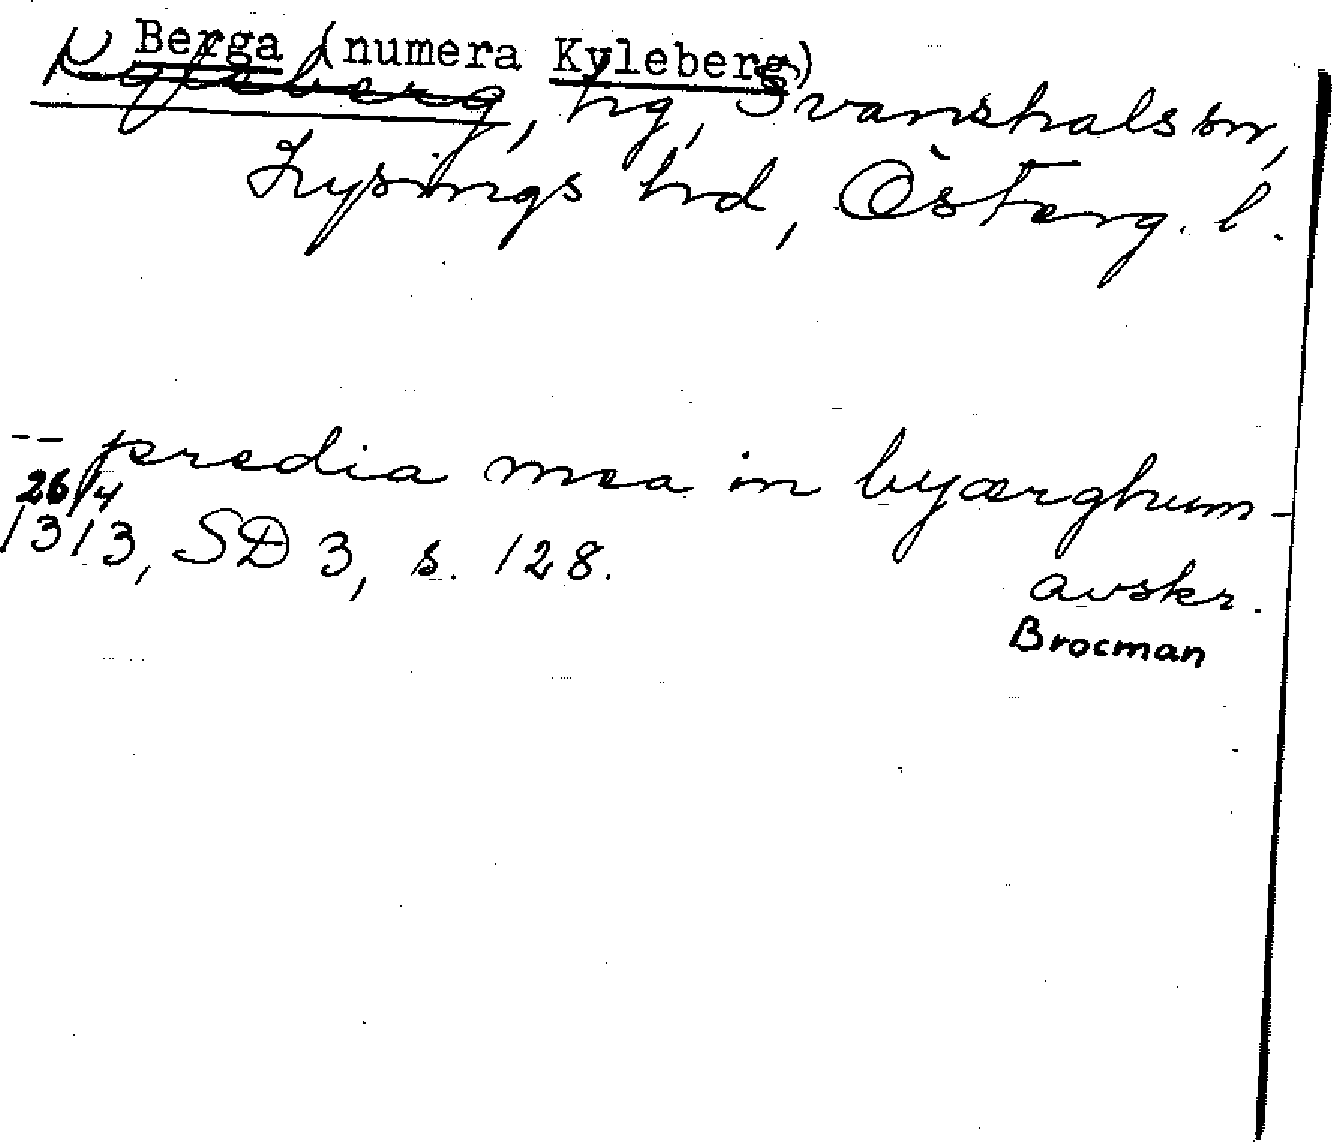 Berga (numera Kyleberg)
Kyleberg, hg, Svanshals sn,
Lysings hd, Österg. l.
-- predia mea in byærghum -
26/4
1313, SD 3, s. 128.
avskr.
Brocman